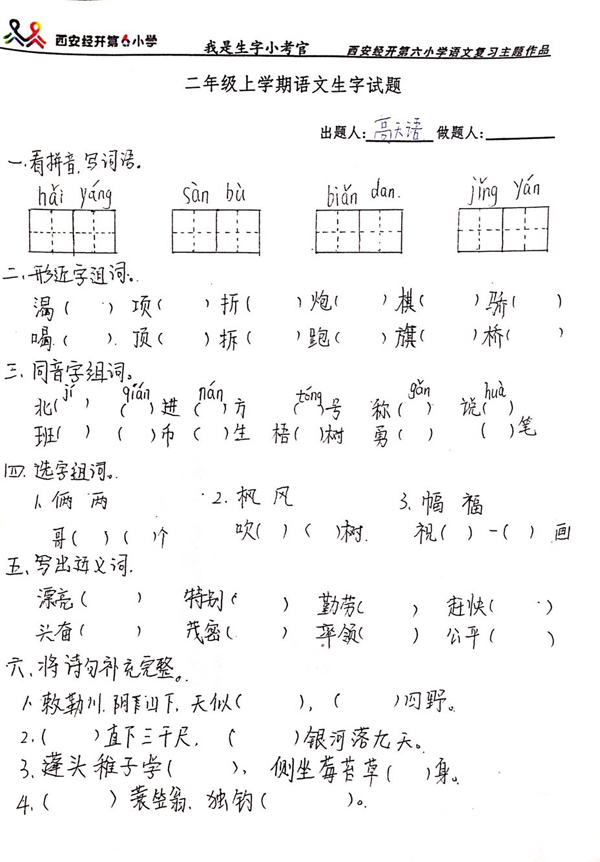 西安经开第六小学 我是生字小考官 西安经开第六小学语文复习主题作品
二年级上学期语文生字试题
出题人: 高天语 做题人:
一.看拼音,写词语。
hǎi yáng sàn bù biǎn dan. jǐng yán
二.形近字组词。
渴( ) 项( ) 折( ) 炮( ) 棋( ) 骄( )
喝( ) 顶( ) 拆( ) 跑( ) 旗( ) 桥( )
三.同音字组词。
jí qián nán tóng gǎn huà
北( ) ( )进 ( )方 ( )号 称( ) 说( )
班( ) ( )币 ( )生 梧( )树 勇( ) ( )笔
四.选字组词。
1.俩 两 2.枫 风 3.幅 福
哥( ) ( )个 吹( ) ( )树. 祝( ) 一( )画
五.写出近义词.
漂亮( ) 特别( ) 勤劳( ) 赶快( )
兴奋( ) 茂密( ) 率领( ) 公平( )
六、将诗句补充完整。
1.敕勒川,阴山下,天似( ),( )四野。
2.( )直下三千尺,( )银河落九天。
3.蓬头稚子学( ),侧坐莓苔草( )身。
4.( )蓑笠翁,独钓( )。